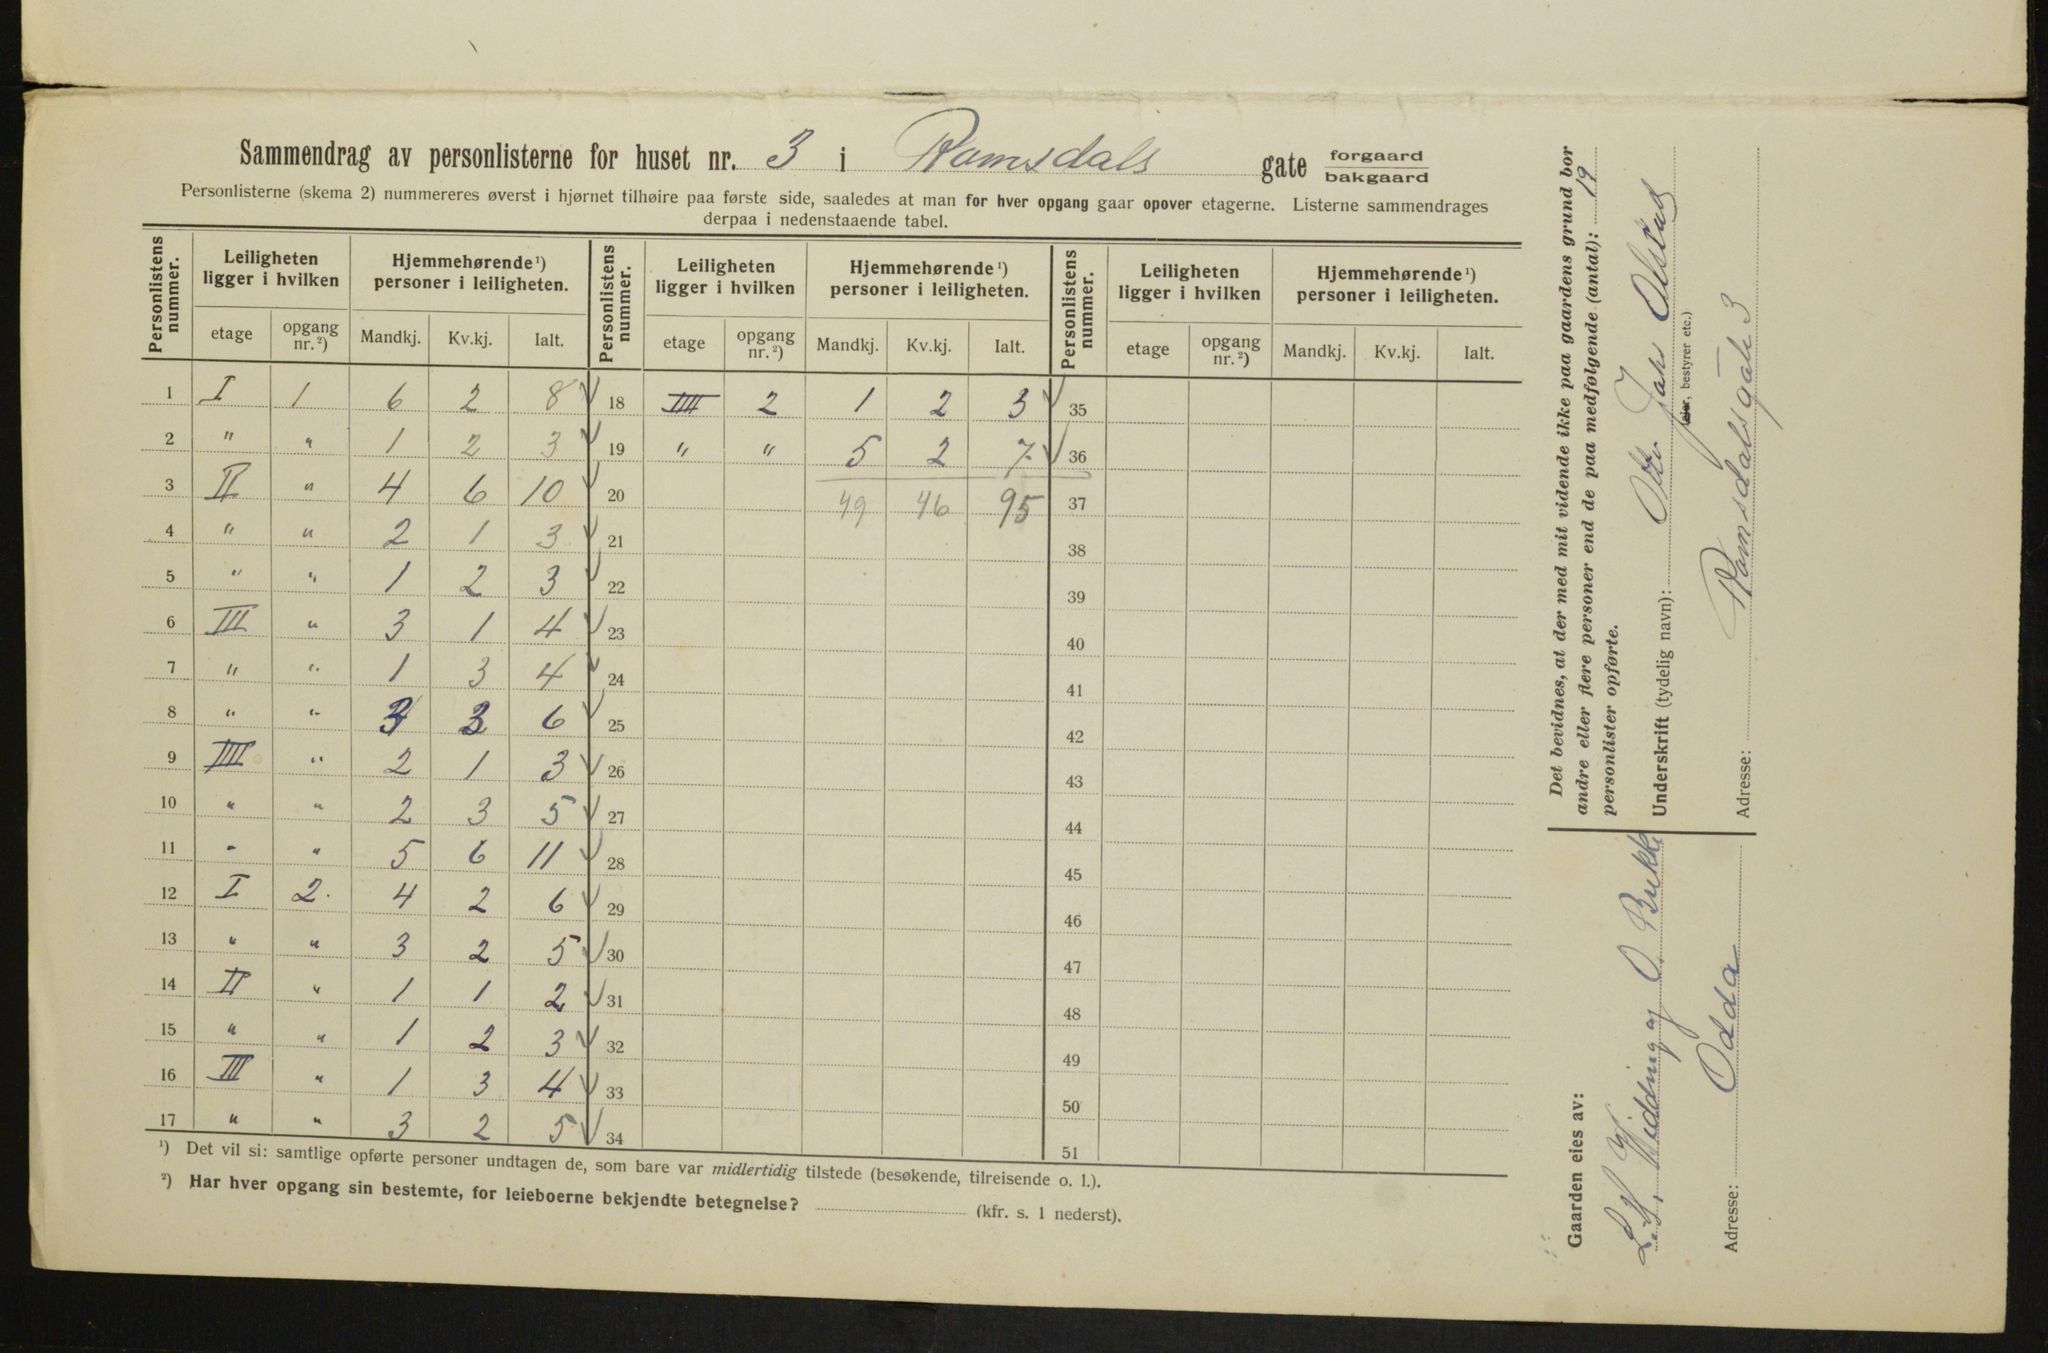 Sammendrag av personlisterne for huset nr. 3 i Romsdals gate forgaard bakgaard
Personlisterne (skema 2) nummereres øverst i hjørnet tilhøire paa første side, saaledes at man for hver opgang gaar opover etagerne. Listerne sammendrages
derpaa i nedenstaaende tabel.
Personlistens nummer. Leiligheten ligger i hvilken Hjemmehørende ¹) personer i leiligheten. Personlistens nummer. Leiligheten ligger i hvilken Hjemmehørende ¹) personer i leiligheten. Personlistens nummer. Leiligheten ligger i hvilken Hjemmehørende ¹) personer i leiligheten.
etage opgang nr. ²) Mandkj. Kv.kj. Ialt. etage opgang nr. ²) Mandkj. Kv.kj. Ialt. etage opgang nr. ²) Mandkj. Kv.kj. Ialt.
1 I 1 6 2 8 18 IIII 2 1 2 3 35
2 " " 1 2 3 19 " " 5 2 7 36
3 II " 4 6 10 20 49 46 95 37
4 " " 2 1 3 21 38
5 " " 1 2 3 22 39
6 III " 3 1 4 23 40
7 " " 1 3 4 24 41
8 " " 3 3 6 25 42
9 IIII " 2 1 3 26 43
10 " " 2 3 5 27 44
11 - " 5 6 11 28 45
12 I 2. 4 2 6 29 46
13 " " 3 2 5 30 47
14 II " 1 1 2 31 48
15 " " 1 2 3 32 49
16 III " 1 3 4 33 50
17 " " 3 2 5 34 51
¹) Det vil si: samtlige opførte personer undtagen de, som bare var midlertidig tilstede (besøkende, tilreisende o. l.).
²) Har hver opgang sin bestemte, for leieboerne bekjendte betegnelse? (kfr. s. 1 nederst).
Det bevidnes, at der med mit vidende ikke paa gaardens grund bor
andre eller flere personer end de paa medfølgende (antal): 19
personlister opførte.
Underskrift (tydelig navn): Otto Johs Olstad
eier, bestyrer etc.)
Adresse: Romsdalsgate 3
Gaarden eies av:
L. H. Widding og O. Brekke
Adresse: Odda